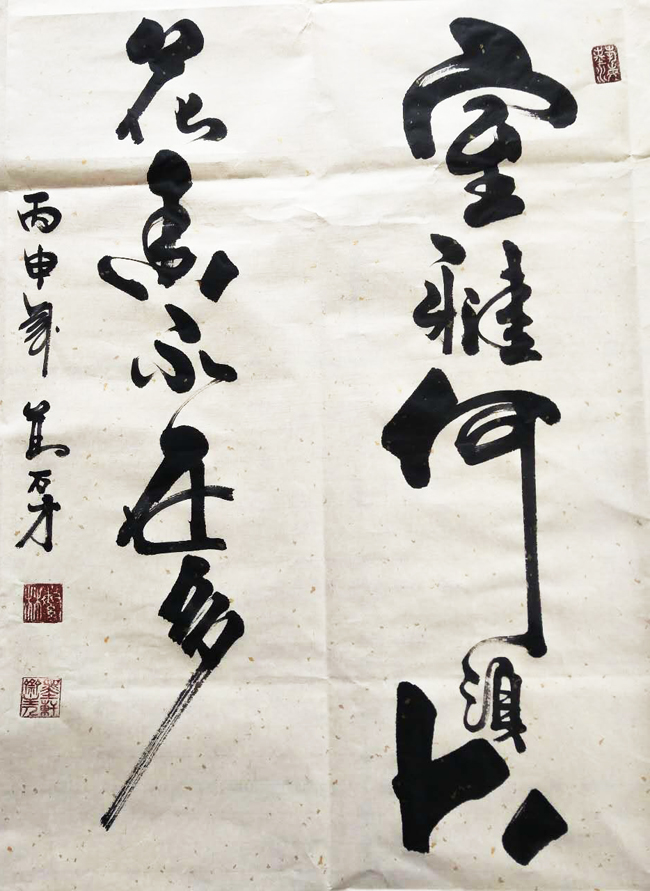 室雅何須大
花香不在多
丙申年